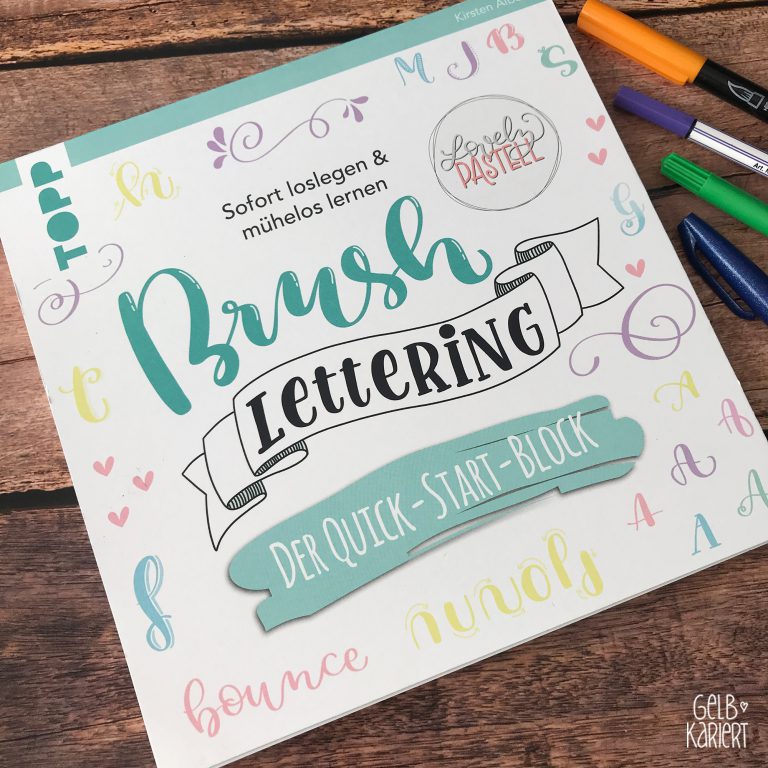 Kirsten
TOPP
M J B S
h
Sofort loslegen &
mühelos lernen
Lovely
PASTELL
Brush
LETTERING
DER QUICK-START-BLOCK
G
A
A
A
A
A
A
A
bounce
GELB
KARIERT